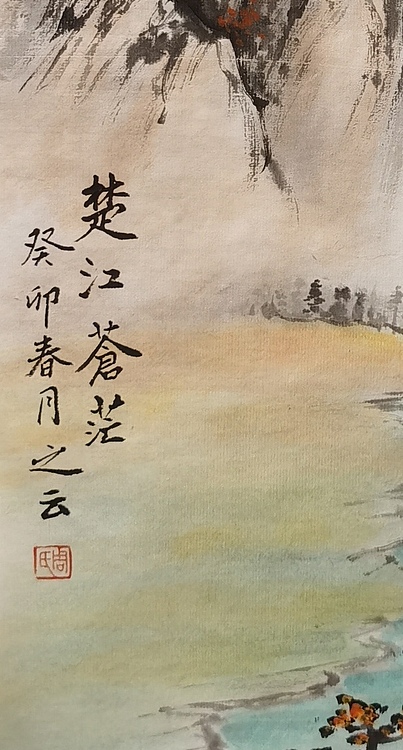 楚江蒼茫
癸卯春月之云
周氏